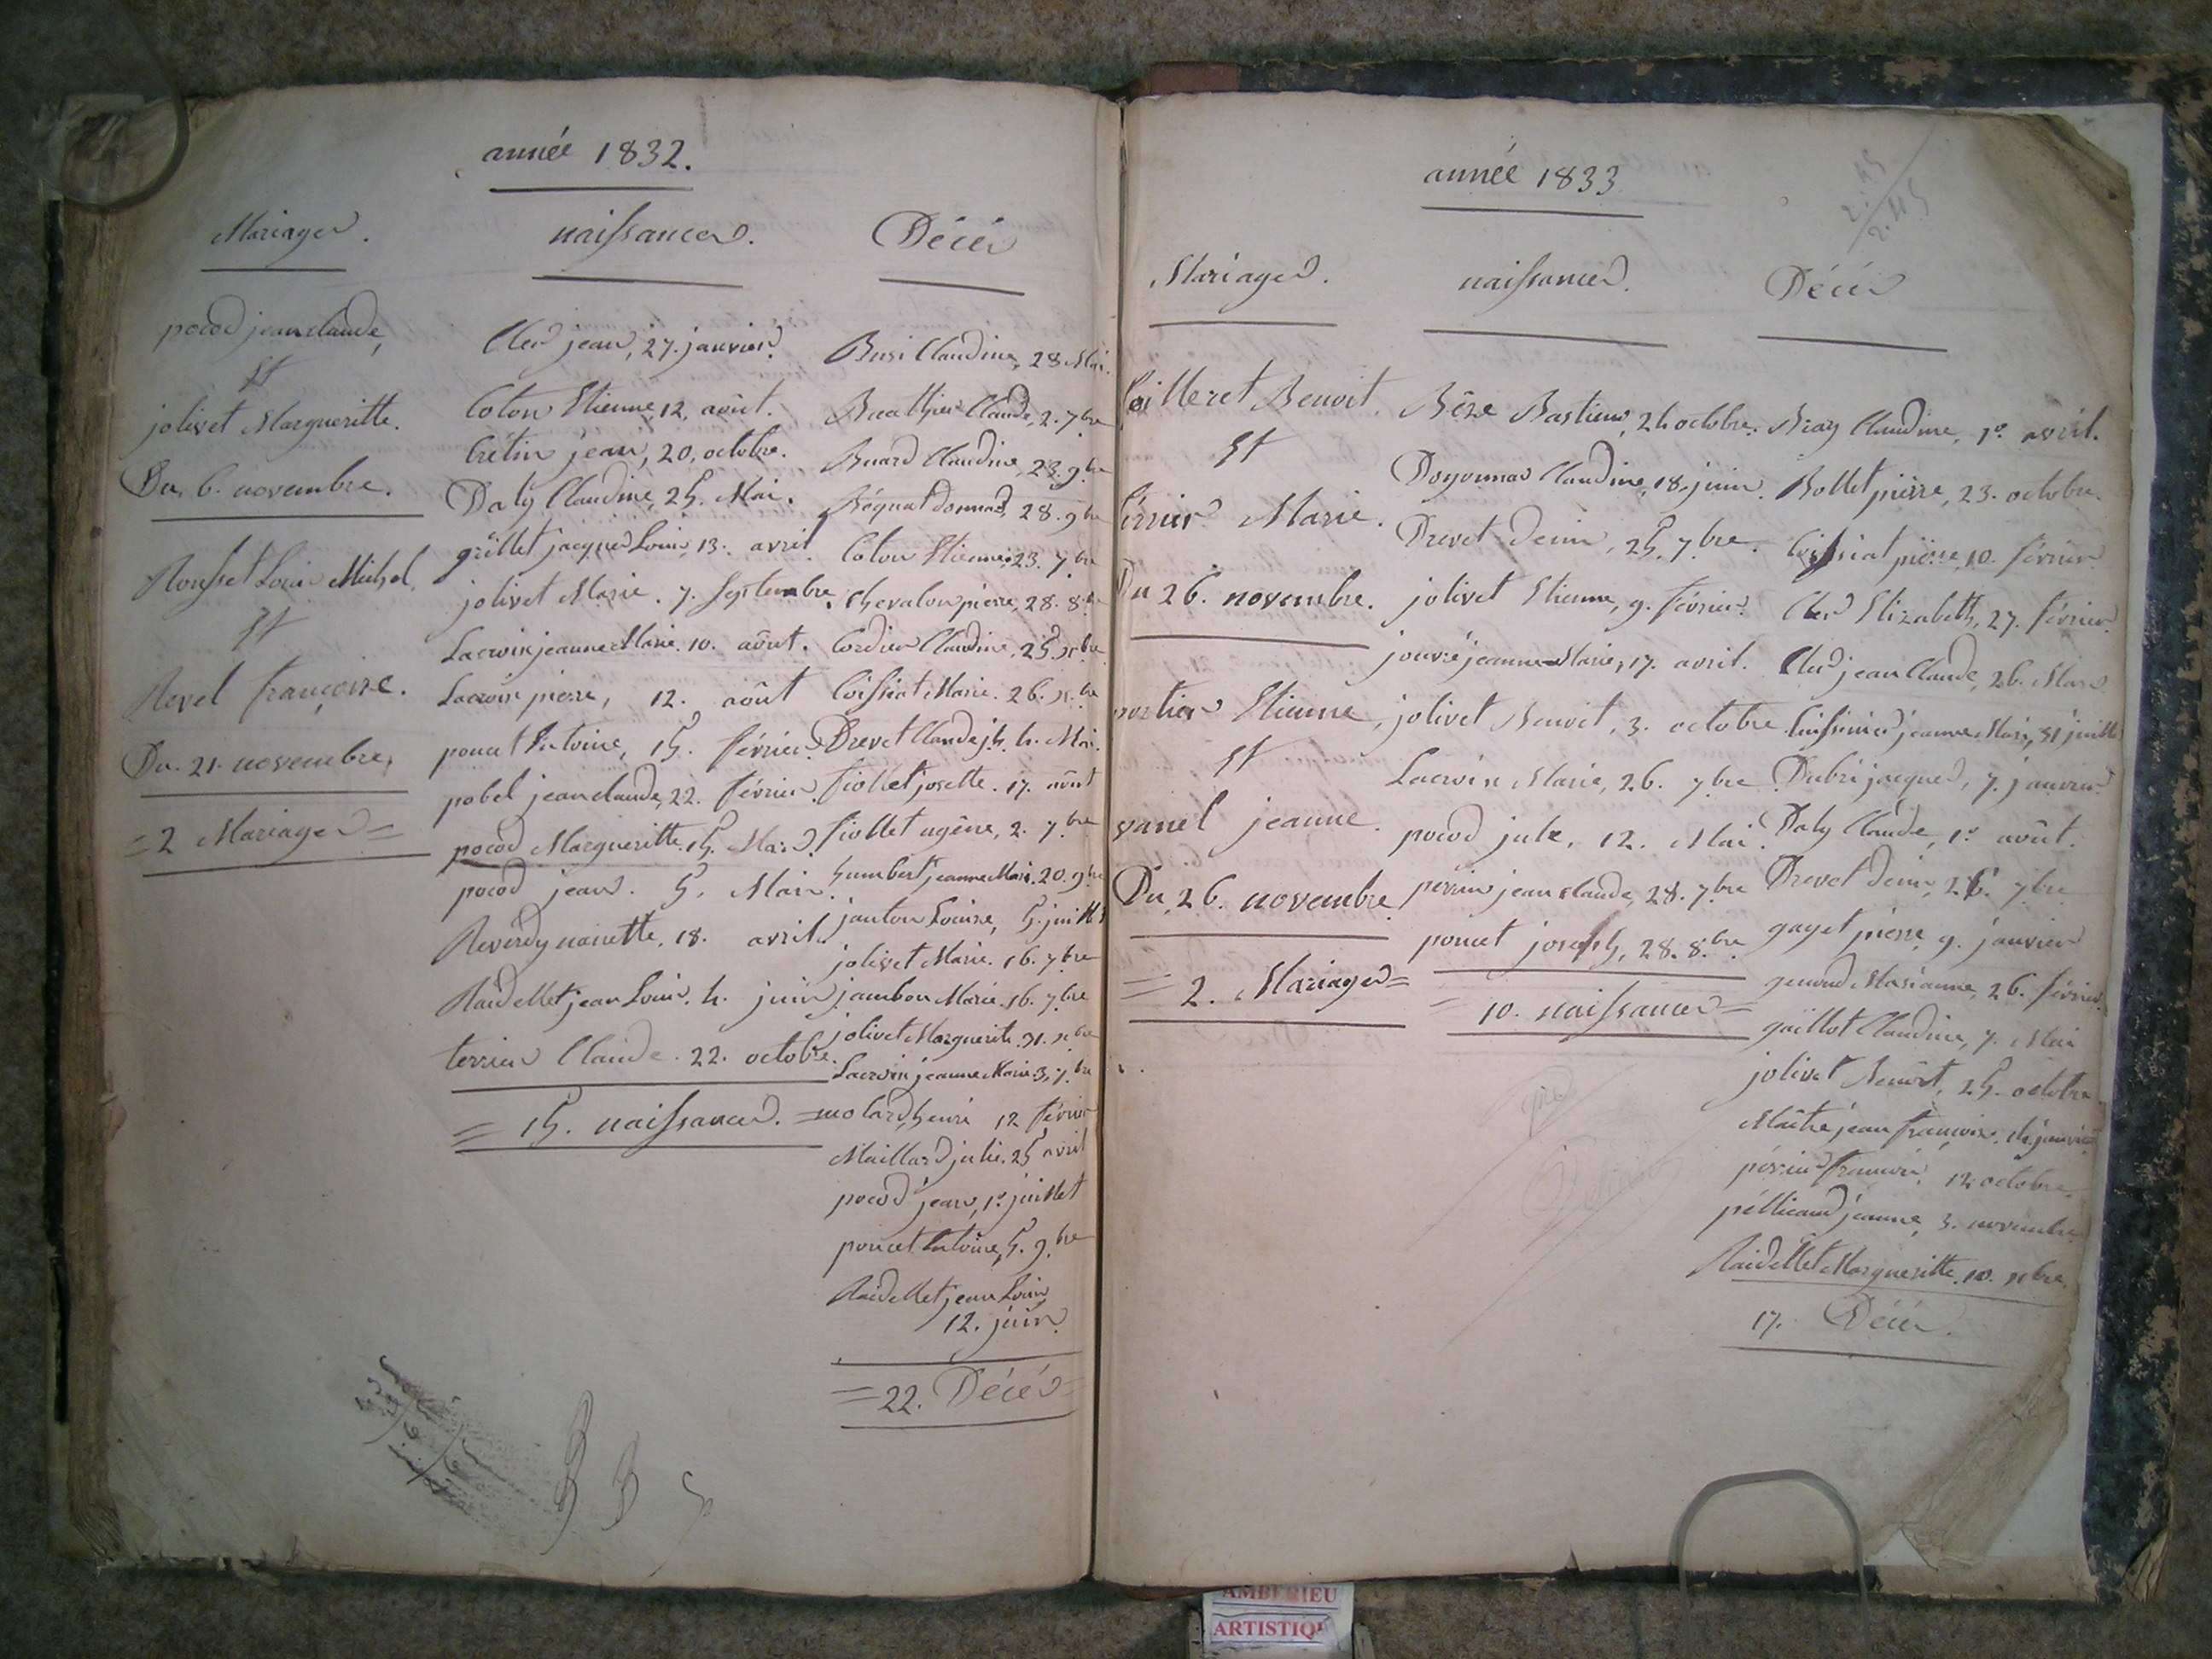 année 1832.
Mariages.
pocod jean claude,
Et
jolivet Margueritte.
Du 6. novembre.
Rousset Louis Michel,
Et
Revel françoise.
Du 21. novembre,
=2 Mariages=
naissances.
Clerc jean, 27. janvier.
Coton Etienne, 12. août.
Crétin jean, 20, octobre.
Daly Claudine, 25. Mai.
grillet jacques Louis, 13. avril
jolivet Marie. 7. Septembre.
Lacroix jeanne Marie. 10. août.
Lacroix pierre, 12. août
poncet Antoine, 15. février
pobel jean claude, 22. février.
pocod Margueritte. 15. Mars.
pocod jean. 5. Mars.
Reverdy nanette, 18. avril.
Raidellet jean Louis. 4. juin
terrier Claude. 22. octobre.
= 15. naissances. =
Décès
Claudine, 28 Mai.
Claude, 2. 7bre
Buard Claudine, 23. 9bre
28. 9bre
Coton Etienne, 23. 7bre
Chevalon pierre, 28. 8bre
Cordier Claudine, 25. xbre
Coissiat Marie. 26. xbre
Drevet Claude jh. 4. Mai.
fiollet josette. 17. août
fiollet ugène, 2. 7bre
humbert jeanne Marie. 20. 9bre
janton Louise, 5. juillet
jolivet Marie. 16. 7bre
jambon Marie. 16. 7bre
jolivet Marguerite. 31. xbre
Lacroix jeanne Marie. 3. 7bre
molard henri 12 février
Maillard julie. 25 avril
pocod jean, 1er juillet
poncet Antoine, 5. 9bre
Raidellet jean Louis
12. juin.
=22. Décès=
année 1833
Mariages.
Cailleret Benoit.
Et
Marie.
Du 26. novembre.
Etienne,
Et
vanel jeanne.
Du 26. novembre
= 2. Mariages=
naissances.
Bêze Bastien, 24 octobre.
Claudine, 18. juin.
Drevet Denis, 25. 7bre.
jolivet Etienne, 9. février.
jouvre jeanne Marie, 17. avril.
jolivet Benoit, 3. octobre
Lacroix Marie, 26. 7bre
pocod jule, 12. Mai.
perrin jean claude, 28. 7bre
poncet joseph, 28. 8bre.
= 10. naissances=
Décès
Claudine, 1er avril.
Bollet pierre, 23. octobre.
Coissiat pierre, 10. février
Clerc Elizabeth, 27. février.
Clerc jean Claude, 26. Mars
jeanne Marie, 31 juillet
Dubri jacques, 7. janvier
Daly Claude, 1er août.
Drevet Denis, 26. 7bre
gayet pierre, 9. janvier
Marianne, 26. février.
gaillot Claudine, 7. Mai
jolivet Benoît, 25. octobre
Maître jean françois. 14. janvier
périn françois, 12 octobre.
péllicand jeanne, 3. novembre
Raidellet Margueritte. 10. xbre.
17. Décès.
2.45
2.45
AMBERIEU
ARTISTIQU